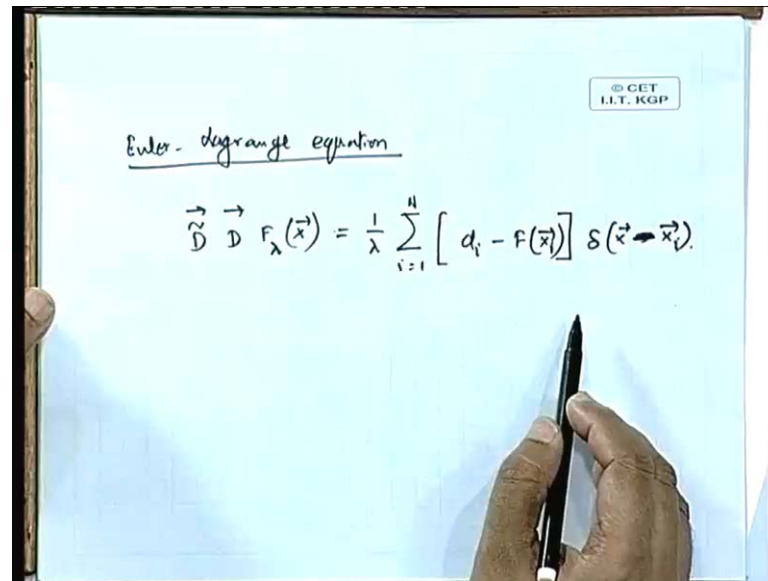 © CET
I.I.T. KGP
Euler-Lagrange equation
$\vec{\tilde{D}} \vec{D} F_\lambda(\vec{x}) = \frac{1}{\lambda} \sum_{i=1}^{N} [d_i - F(\vec{x_i})] \delta(\vec{x} - \vec{x_i}).$